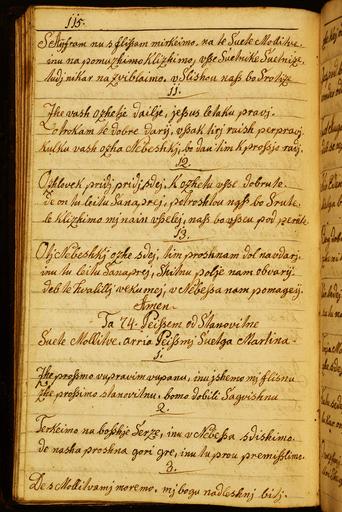 115.
nu s flissam mirkeimo, na te Suete Modlitve.
inu na pomuzhimo klizhimo, vsse Suetnike Suetnize,
tudj nikar na zviblaimo. v Slishou nass bo Srotize
11.
Zhe vash ozhetje dailje, jesus letaku pravj.
Otrokam te dobre darij, vssak tirj raish perpravj.
kulku vash ozha Nebeshkj, bo dau tim k prossjo raij.
12.
Ozhlovek pridj pridj sdej, K ozhetu vsse dobrute.
Je on tu leitu Sanaprej, potroshtou nass bo Srute.
le klizhimo mj nain vsselej, nass bo vsseu pod perute.
13.
O tj Nebeshkj ozhe sdej, tim proshnam dol navdarj.
inu tu leitu Sanaprej, Shitnu polje nam obvarij.
deb te hvalillj vekumej, v Nebessa nam pomageij.
Amen.
Ta 74. Peissem od Stanovitne
Suete Mollitve. arria Peissmj Suetga Martina
1.
Zhe prossmo vupravim vupanu, inu jshemo mj flissnu
zhe prossimo stanovitnu, bomo dobili Sagvishnu
2.
Terkeimo na bosshje Serze, inu v Nebessa sdishimo.
de nasha proshna gori gre, inu tu prou premisslimo.
3.
De s Mollitvamj moremo, mj bogu nadleshnj bitj.